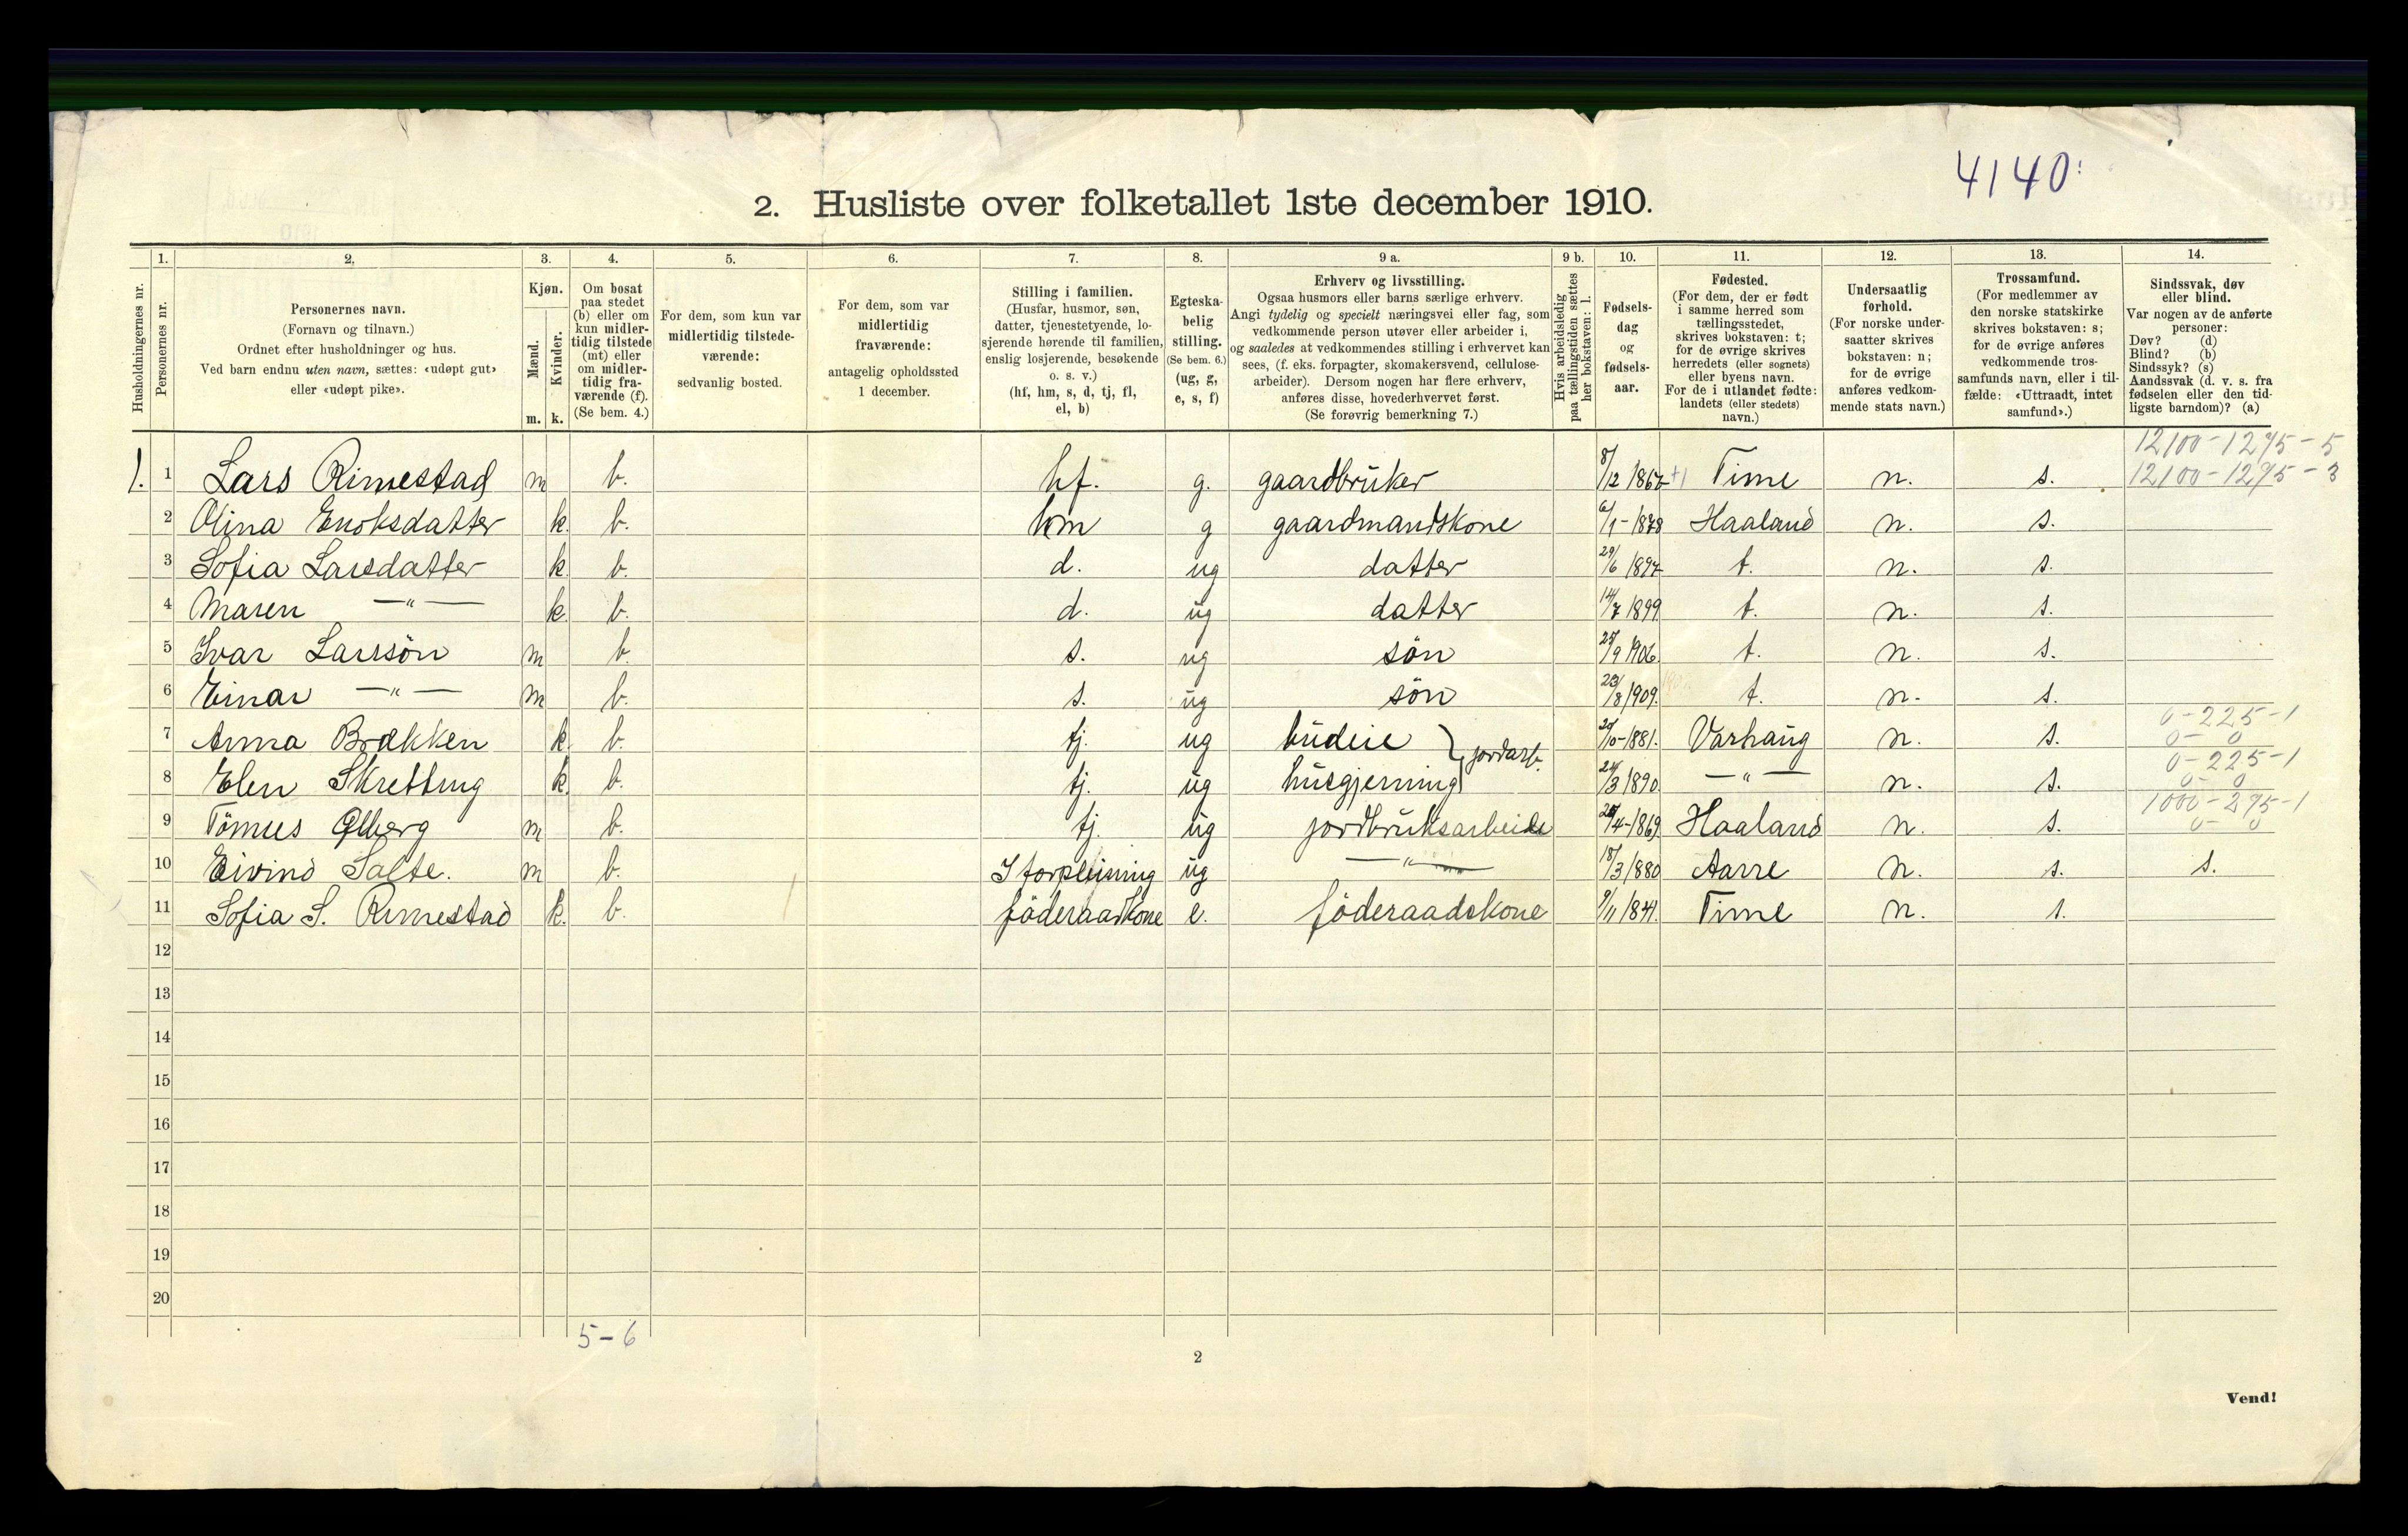 4140:
2. Husliste over folketallet 1ste december 1910.
Husholdningernes nr.
1. Personernes nr.
2. Personernes navn. (Fornavn og tilnavn.) Ordnet efter husholdninger og hus. Ved barn endnu uten navn, sættes: «udøpt gut» eller «udøpt pike».
3. Kjøn. Mænd. m. Kvinder. k.
4. Om bosat paa stedet (b) eller om kun midlertidig tilstede (mt) eller om midlertidig fraværende (f). (Se bem. 4.)
5. For dem, som kun var midlertidig tilstedeværende: sedvanlig bosted.
6. For dem, som var midlertidig fraværende: antagelig opholdssted 1 december.
7. Stilling i familien. (Husfar, husmor, søn, datter, tjenestetyende, losjerende hørende til familien, enslig losjerende, besøkende o. s. v.) (hf, hm, s, d, tj, fl, el, b)
8. Egteskabelig stilling. (Se bem. 6.) (ug, g, e, s, f)
9 a. Erhverv og livsstilling. Ogsaa husmors eller barns særlige erhverv. Angi tydelig og specielt næringsvei eller fag, som vedkommende person utøver eller arbeider i, og saaledes at vedkommendes stilling i erhvervet kan sees, (f. eks. forpagter, skomakersvend, cellulosearbeider). Dersom nogen har flere erhverv, anføres disse, hovederhvervet først. (Se forøvrig bemerkning 7.)
9 b. Hvis arbeidsledig paa tællingstiden sættes her bokstaven: l.
10. Fødselsdag og fødselsaar.
11. Fødested. (For dem, der er født i samme herred som tællingsstedet, skrives bokstaven: t; for de øvrige skrives herredets (eller sognets) eller byens navn. For de i utlandet fødte: landets (eller stedets) navn.)
12. Undersaatlig forhold. (For norske undersaatter skrives bokstaven: n; for de øvrige anføres vedkommende stats navn.)
13. Trossamfund. (For medlemmer av den norske statskirke skrives bokstaven: s; for de øvrige anføres vedkommende trossamfunds navn, eller i tilfælde: «Uttraadt, intet samfund».)
14. Sindssvak, døv eller blind. Var nogen av de anførte personer: Døv? (d) Blind? (b) Sindssyk? (s) Aandssvak (d. v. s. fra fødselen eller den tidligste barndom)? (a)
12100-1275-5
1. 1 Lars Rimestad m b. hf. g. gaardbruker 8/12 1867 +1 Time n. s. 12100-1295-3
2 Olina Enoksdatter k. b. hm g gaardmandskone 6/1-1878 Haaland n. s.
3 Sofia Larsdatter k. b. d. ug datter 29/6 1897 t. n. s.
4 Maren —"— k. b. d. ug datter 14/7 1899. t. n. s.
5 Ivar Larssön m b. s. ug sön 25/9 1906. t. n. s.
6 Einar —"— m b. s. ug sön 23/8 1909. t. n. s.
0-225-1
7 Anna Brækken k. b. tj. ug budeie } jordarb. 20/10-1881. Varhaug n. s. 0- 0
0-225-1
8 Elen Skretting k. b. tj. ug husgjerning 24/3 1890. —"— n. s. 0- 0
1000-295-1
9 Tönnes Ølberg m b. tj. ug jordbruksarbeide /4-1869. Haaland n. s. 0- 0
10 Eivind Salte. m b. I forpleining ug —"— 18/3 1880 Aarre n. s. s.
11 Sofia S. Rimestad k. b. föderaadkone e. föderaadskone 9/11 1841. Time n. s.
12
13
14
15
16
17
18
19
20
5-6
2
Vend!